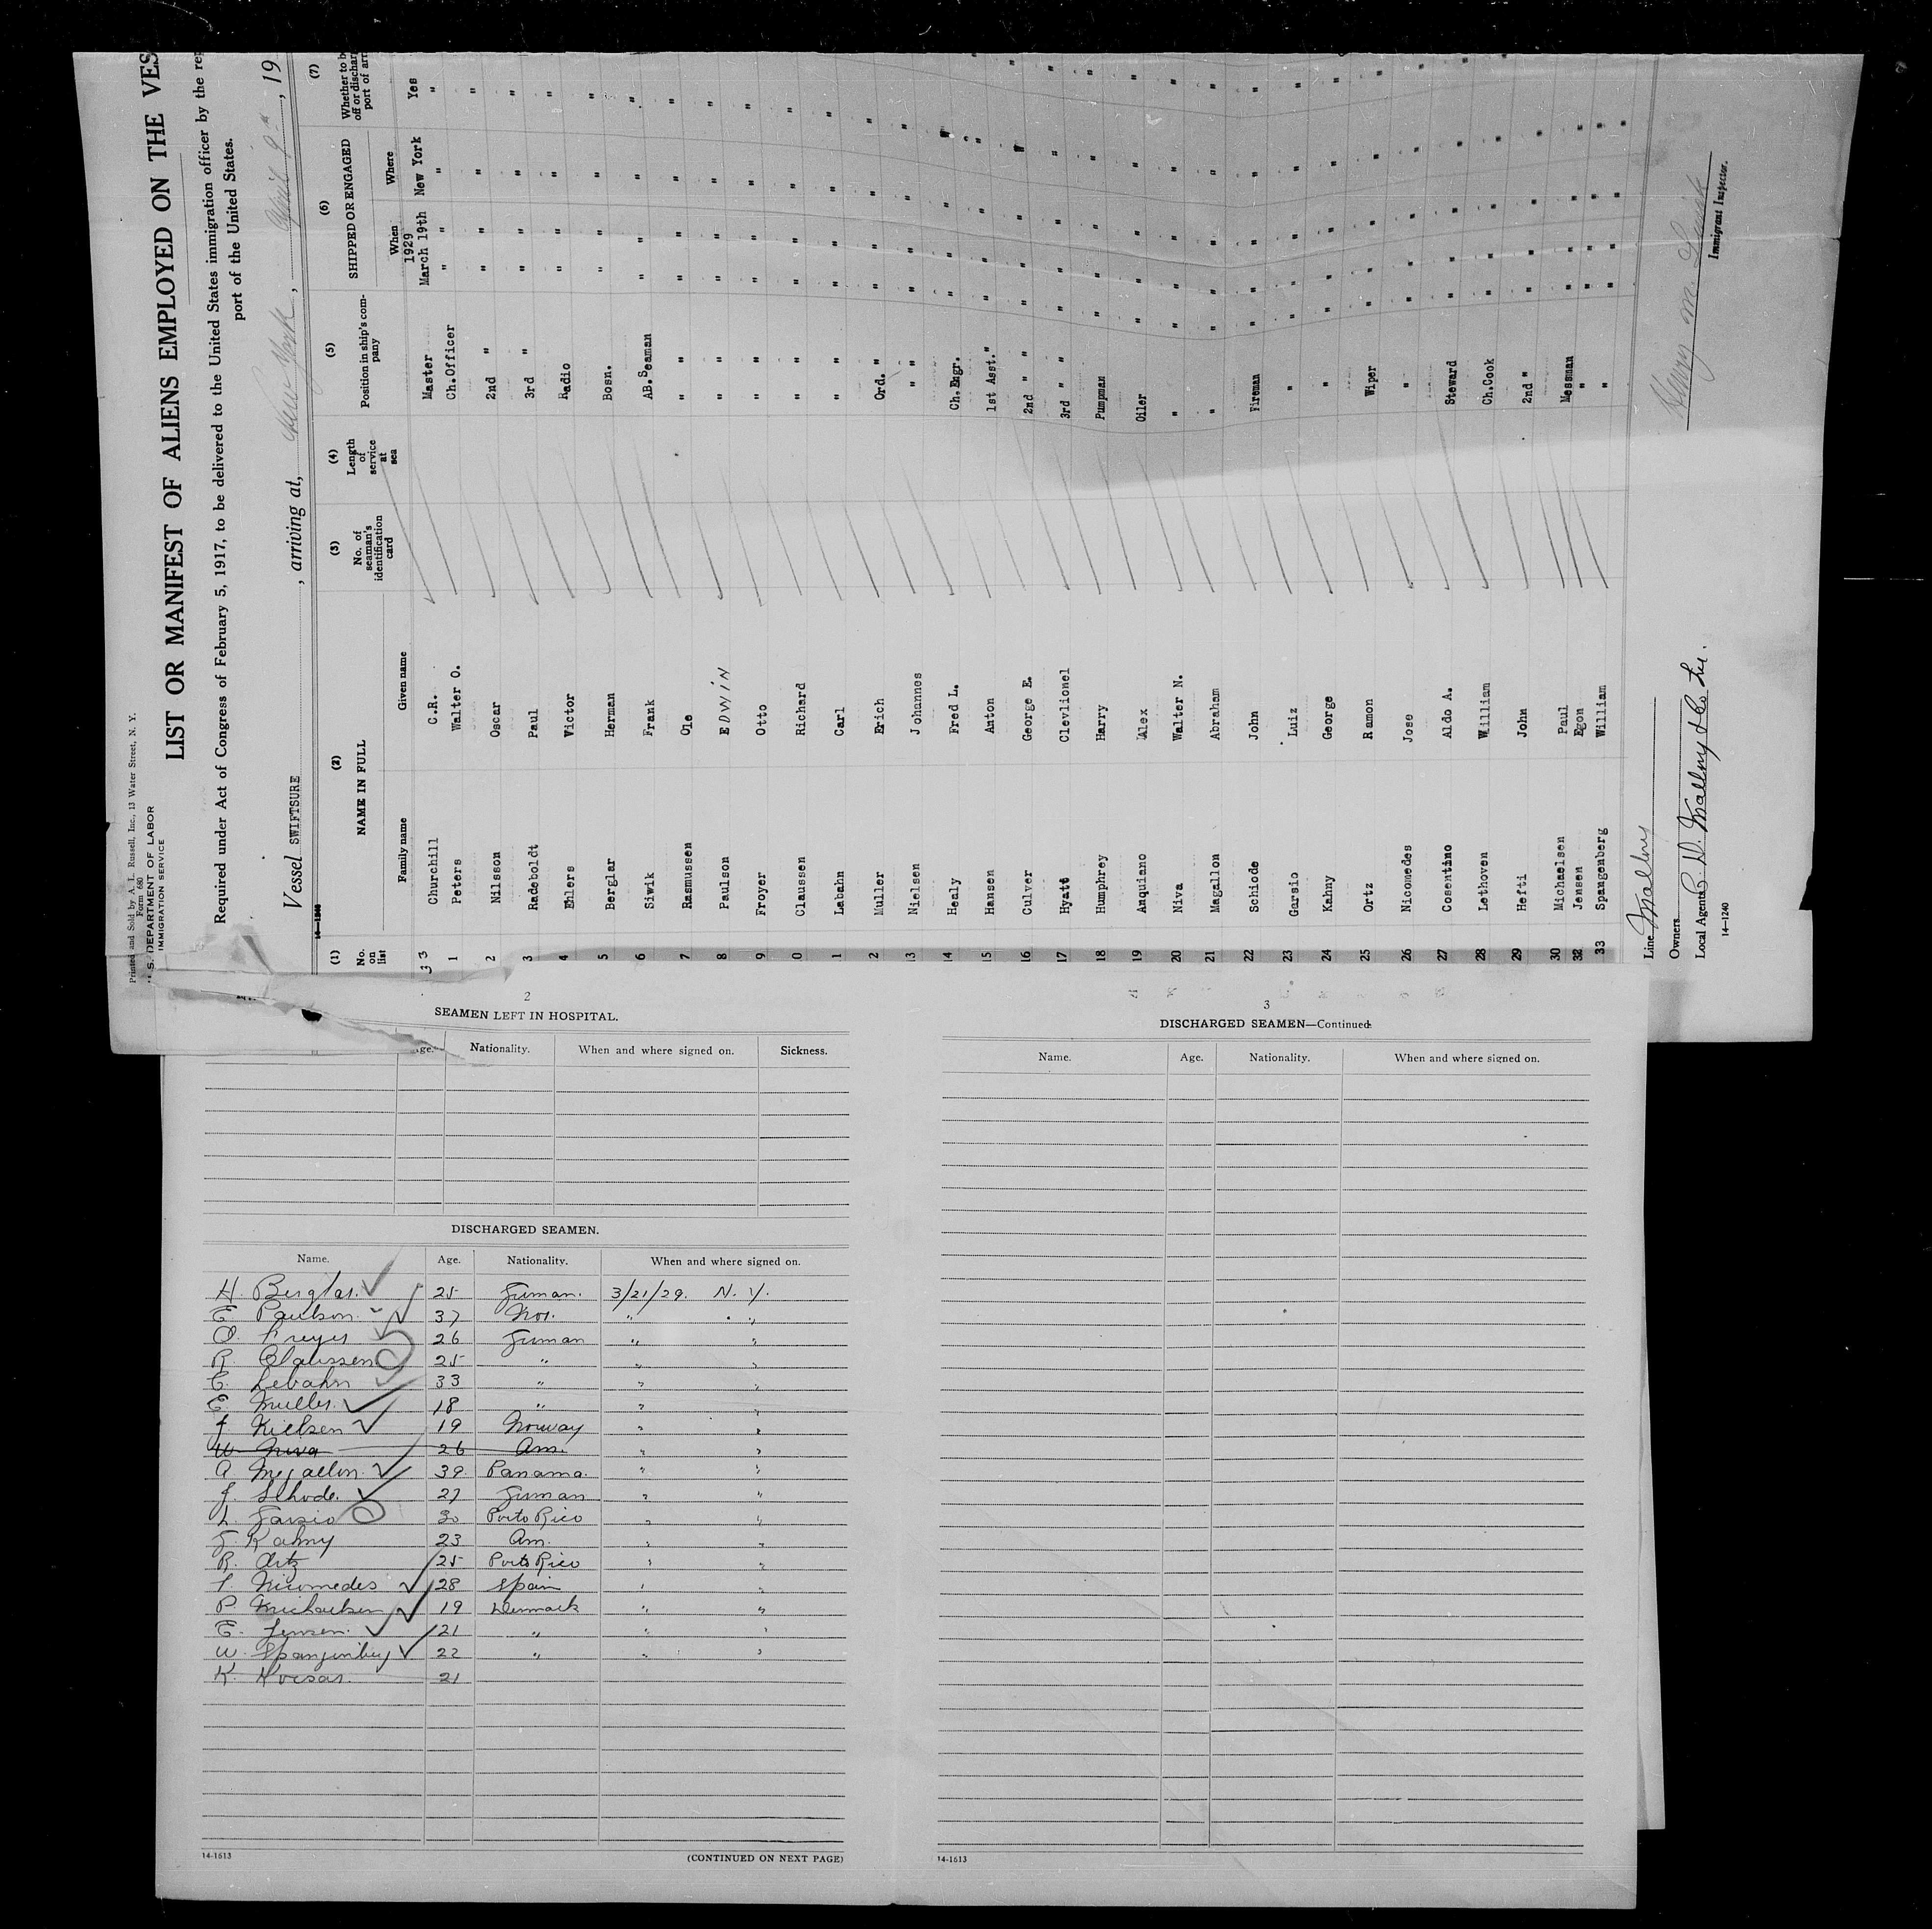 Printed and Sold by A. L. Russell, Inc., 13 Water Street, N. Y.
Form 680
U. S. DEPARTMENT OF LABOR
IMMIGRATION SERVICE
LIST OR MANIFEST OF ALIENS EMPLOYED ON THE VES
Required under Act of Congress of February 5, 1917, to be delivered to the United States immigration officer by the rep
port of the United States.
Vessel SWIFTSURE, arriving at, New York, April 9th, 19
14-1240
(1) (2) (3) (4) (5) (6) (7)
No. on list NAME IN FULL No. of seaman's identification card Length of service at sea Position in ship's company SHIPPED OR ENGAGED Whether to b off or dischar port of arr
Family name Given name When Where
1929
33 Churchill C.R. Master March 19th New York Yes
1 Peters Walter O. Ch.Officer " " " "
2 Nilsson Oscar 2nd " " " " "
3 Radeboldt Paul 3rd " " " " "
4 Ehlers Victor Radio " " " "
5 Berglar Herman Bosn. " " " "
6 Siwik Frank AB.Seaman " " " "
7 Rasmussen Ole " " " " " "
8 Paulson EDWIN " " " " " "
9 Froyer Otto " " " " " "
0 Claussen Richard " " " " " "
1 Labahn Carl " " " " " "
2 Muller Erich Ord. " " " " "
13 Nielsen Johannes " " " " " "
14 Healy Fred L. Ch.Engr. " " " "
15 Hansen Anton 1st Asst." " " " "
16 Culver George E. 2nd " " " " " "
17 Hyatt Clevlionel 3rd " " " " " "
18 Humphrey Harry Pumpman " " " "
19 Anquiano Alex Oiler " " " "
20 Niva Walter N. " " " " "
21 Magallon Abraham " " " " "
22 Schiode John Fireman " " " "
23 Garsio Luiz " " " " "
24 Kahny George " " " " "
25 Ortz Ramon Wiper " " " "
26 Nicomedes Jose " " " " "
27 Cosentino Aldo A. Steward " " " "
28 Lethoven William Ch.Cook " " " "
29 Hefti John 2nd " " " " "
30 Michaelsen Paul Messman " " "
32 Jensen Egon " " " " "
33 Spangenberg William " " " " "
Line Mallory
Owners
Local Agents
14-1240
Immigrant Inspector.
2
SEAMEN LEFT IN HOSPITAL.
Age. Nationality. When and where signed on. Sickness.
DISCHARGED SEAMEN.
Name. Age. Nationality. When and where signed on.
H. Berglar. 25 German. 3/21/29. N. Y.
E Paulson 37 Nor. " "
O. Freyer 26 German " "
R. Claussen 25 " " "
C. Lebahn 33 " " "
E Muller. 18 " " "
J Nielsen 19 Norway " "
W. Niva 26 Am. " "
A Megallon. 39 Panama. " "
J. Schode. 27 German " "
L. Garsio 30 Porto Rico " "
G. Kahny 23 Am. " "
R. Ortz 25 Porto Rico " "
J. Nicomedes 28 Spain " "
P. Michaelsen 19 Denmark " "
E. Jensen. 21 " " "
W. Spangenberg 22 " " "
K. 21
14-1613
(CONTINUED ON NEXT PAGE)
3
DISCHARGED SEAMEN—Continued.
Name. Age. Nationality. When and where signed on.
14-1613